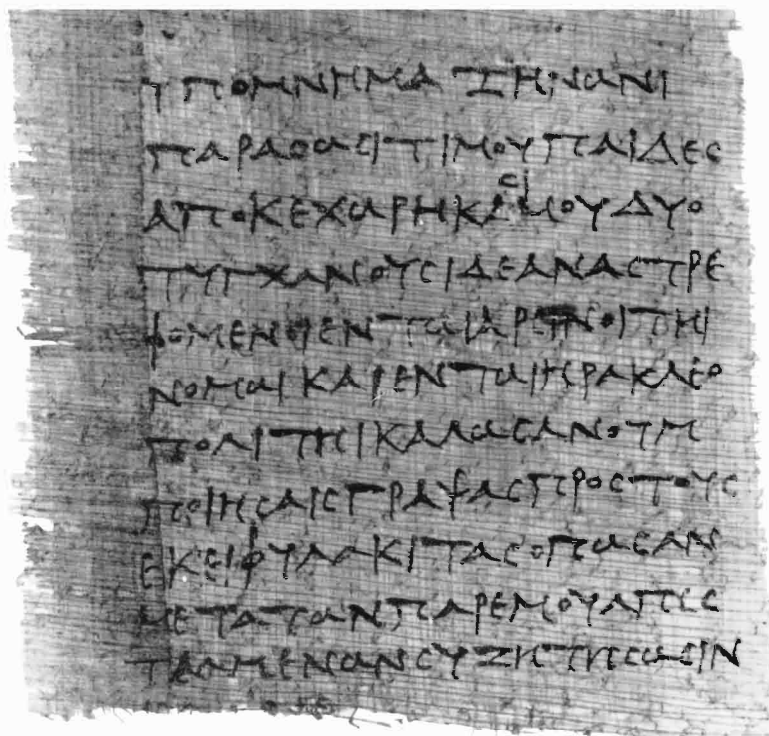 ΥΠΟΜΝΗΜΑ ΖΗΝΩΝΙ
ΠΑΡΑ ΣΩΣΙΤΙΜΟΥ ΠΑΙΔΕΣ
ΑΠΟΚΕΧΩΡΗΚΑΣΙ ΜΟΥ ΔΥΟ
ΤΥΓΧΑΝΟΥΣΙ ΔΕ ΑΝΑΣΤΡΕ
ΦΟΜΕΝΟΙ ΕΝ ΤΩΙ ΑΡΣΙΝΟΙΤΗΙ
ΝΟΜΩΙ ΚΑΙ ΕΝ ΤΩΙ ΗΡΑΚΛΕΟ
ΠΟΛΙΤΗΙ ΚΑΛΩΣ ΑΝ ΟΥΜ
ΠΟΙΗΣΑΙΣ ΓΡΑΨΑΣ ΠΡΟΣ ΤΟΥΣ
ΕΚΕΙ ΦΥΛΑΚΙΤΑΣ ΟΠΩΣ ΑΝ
ΜΕΤΑ ΤΩΝ ΠΑΡ ΕΜΟΥ ΑΠΕΣ
ΤΑΛΜΕΝΩΝ ΣΥΖΗΤΗΣΩΣΙΝ